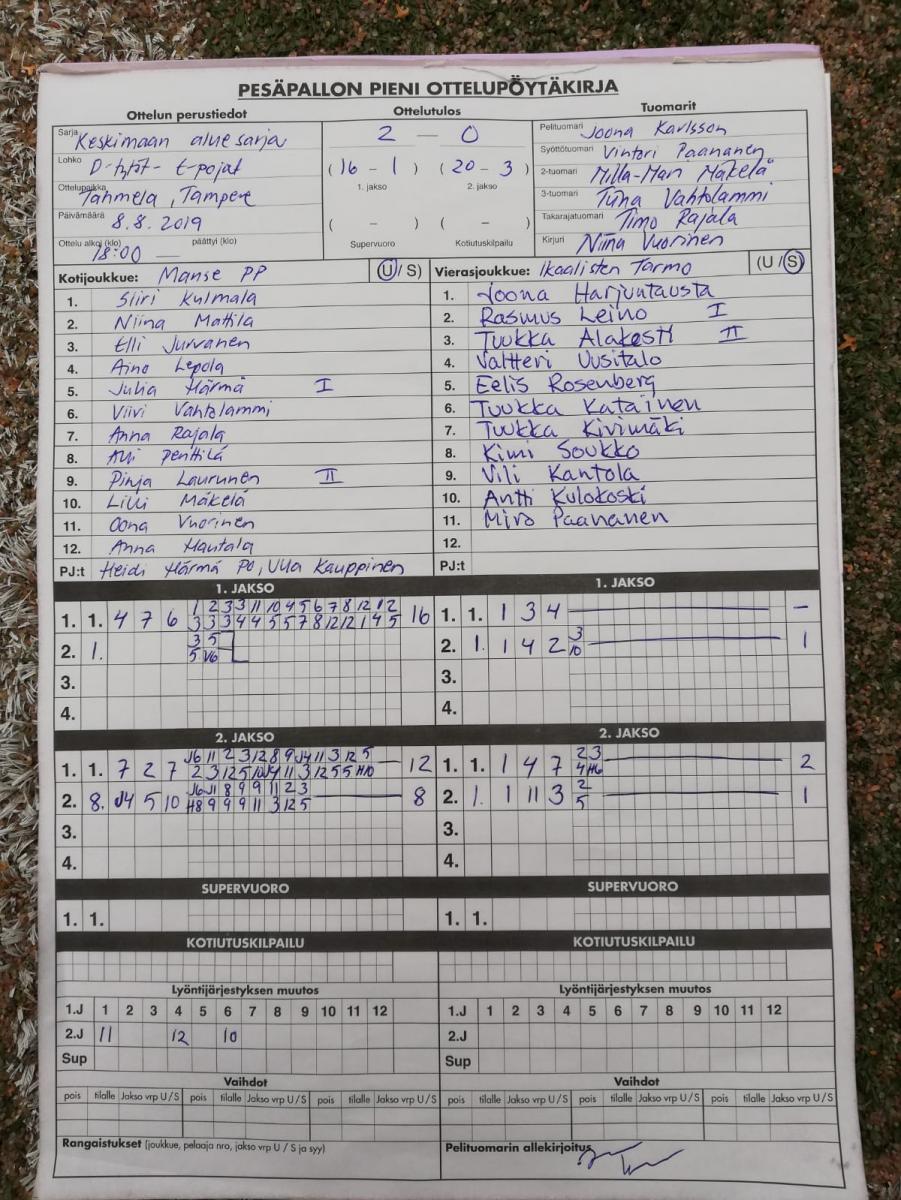 PESÄPALLON PIENI OTTELUPÖYTÄKIRJA
Ottelun perustiedot
Sarja Keskimaan aluesarja
Lohko D-tytöt - E-pojat
Ottelupaikka Tahmela, Tampere
Päivämäärä 8.8.2019
Ottelu alkoi (klo) 18:00 päättyi (klo) —
Ottelutulos
2 — 0
(16 - 1) (20 - 3)
1. jakso 2. jakso
( - ) ( - )
Supervuoro Kotiutuskilpailu
Tuomarit
Pelituomari Joona Karlsson
Syöttötuomari Vintori Paananen
2-tuomari Milla-Mari Mäkelä
3-tuomari Tiina Vahtolammi
Takarajatuomari Timo Rajala
Kirjuri Niina Vuorinen
Kotijoukkue: Manse PP (U/S)
1. Siiri Kulmala
2. Niina Mattila
3. Elli Jurvanen
4. Aino Lepola
5. Julia Härmä I
6. Viivi Vahtolammi
7. Anna Rajala
8. Penttilä
9. Pinja Laurunen II
10. Lilli Mäkelä
11. Oona Vuorinen
12. Anna Hautala
PJ:t Heidi Härmä PO, Ulla Kauppinen
Vierasjoukkue: Ikaalisten Tarmo (U/S)
1. Joona Harjuntausta
2. Rasmus Leino I
3. Tuukka Alakesti II
4. Valtteri Uusitalo
5. Eelis Rosenberg
6. Tuukka Katainen
7. Tuukka Kivimäki
8. Kimi Soukko
9. Vili Kantola
10. Antti Kulokoski
11. Miro Paananen
12.
PJ:t
1. JAKSO
1 2 3 3 11 10 4 5 6 7 8 12 1 2
1. 1. 4 7 6 3 3 3 4 4 5 5 7 8 12 12 1 4 5 16
3 5
2. 1. 5 V6
3.
4.
1. JAKSO
1. 1. 1 3 4 —
3
2. 1. 1 4 2 10 1
3.
4.
2. JAKSO
J6 11 2 3 12 8 9 J4 11 3 12 5
1. 1. 7 2 7 2 3 12 5 10 J4 11 3 12 5 5 H10 12
J6 J1 8 9 9 11 2 3
2. 8. J4 5 10 H8 9 9 9 11 3 12 5 8
3.
4.
2. JAKSO
2 3
1. 1. 1 4 7 4 H6 2
2
2. 1. 1 11 3 5 1
3.
4.
SUPERVUORO
1. 1.
SUPERVUORO
1. 1.
KOTIUTUSKILPAILU
KOTIUTUSKILPAILU
Lyöntijärjestyksen muutos
1.J 1 2 3 4 5 6 7 8 9 10 11 12
2.J 11 12 10
Sup
Lyöntijärjestyksen muutos
1.J 1 2 3 4 5 6 7 8 9 10 11 12
2.J
Sup
Vaihdot
pois tilalle Jakso vrp U/S pois tilalle Jakso vrp U/S pois tilalle Jakso vrp U/S
Vaihdot
pois tilalle Jakso vrp U/S pois tilalle Jakso vrp U/S pois tilalle Jakso vrp U/S
Rangaistukset (joukkue, pelaaja nro, jakso vrp U / S ja syy)
Pelituomarin allekirjoitus